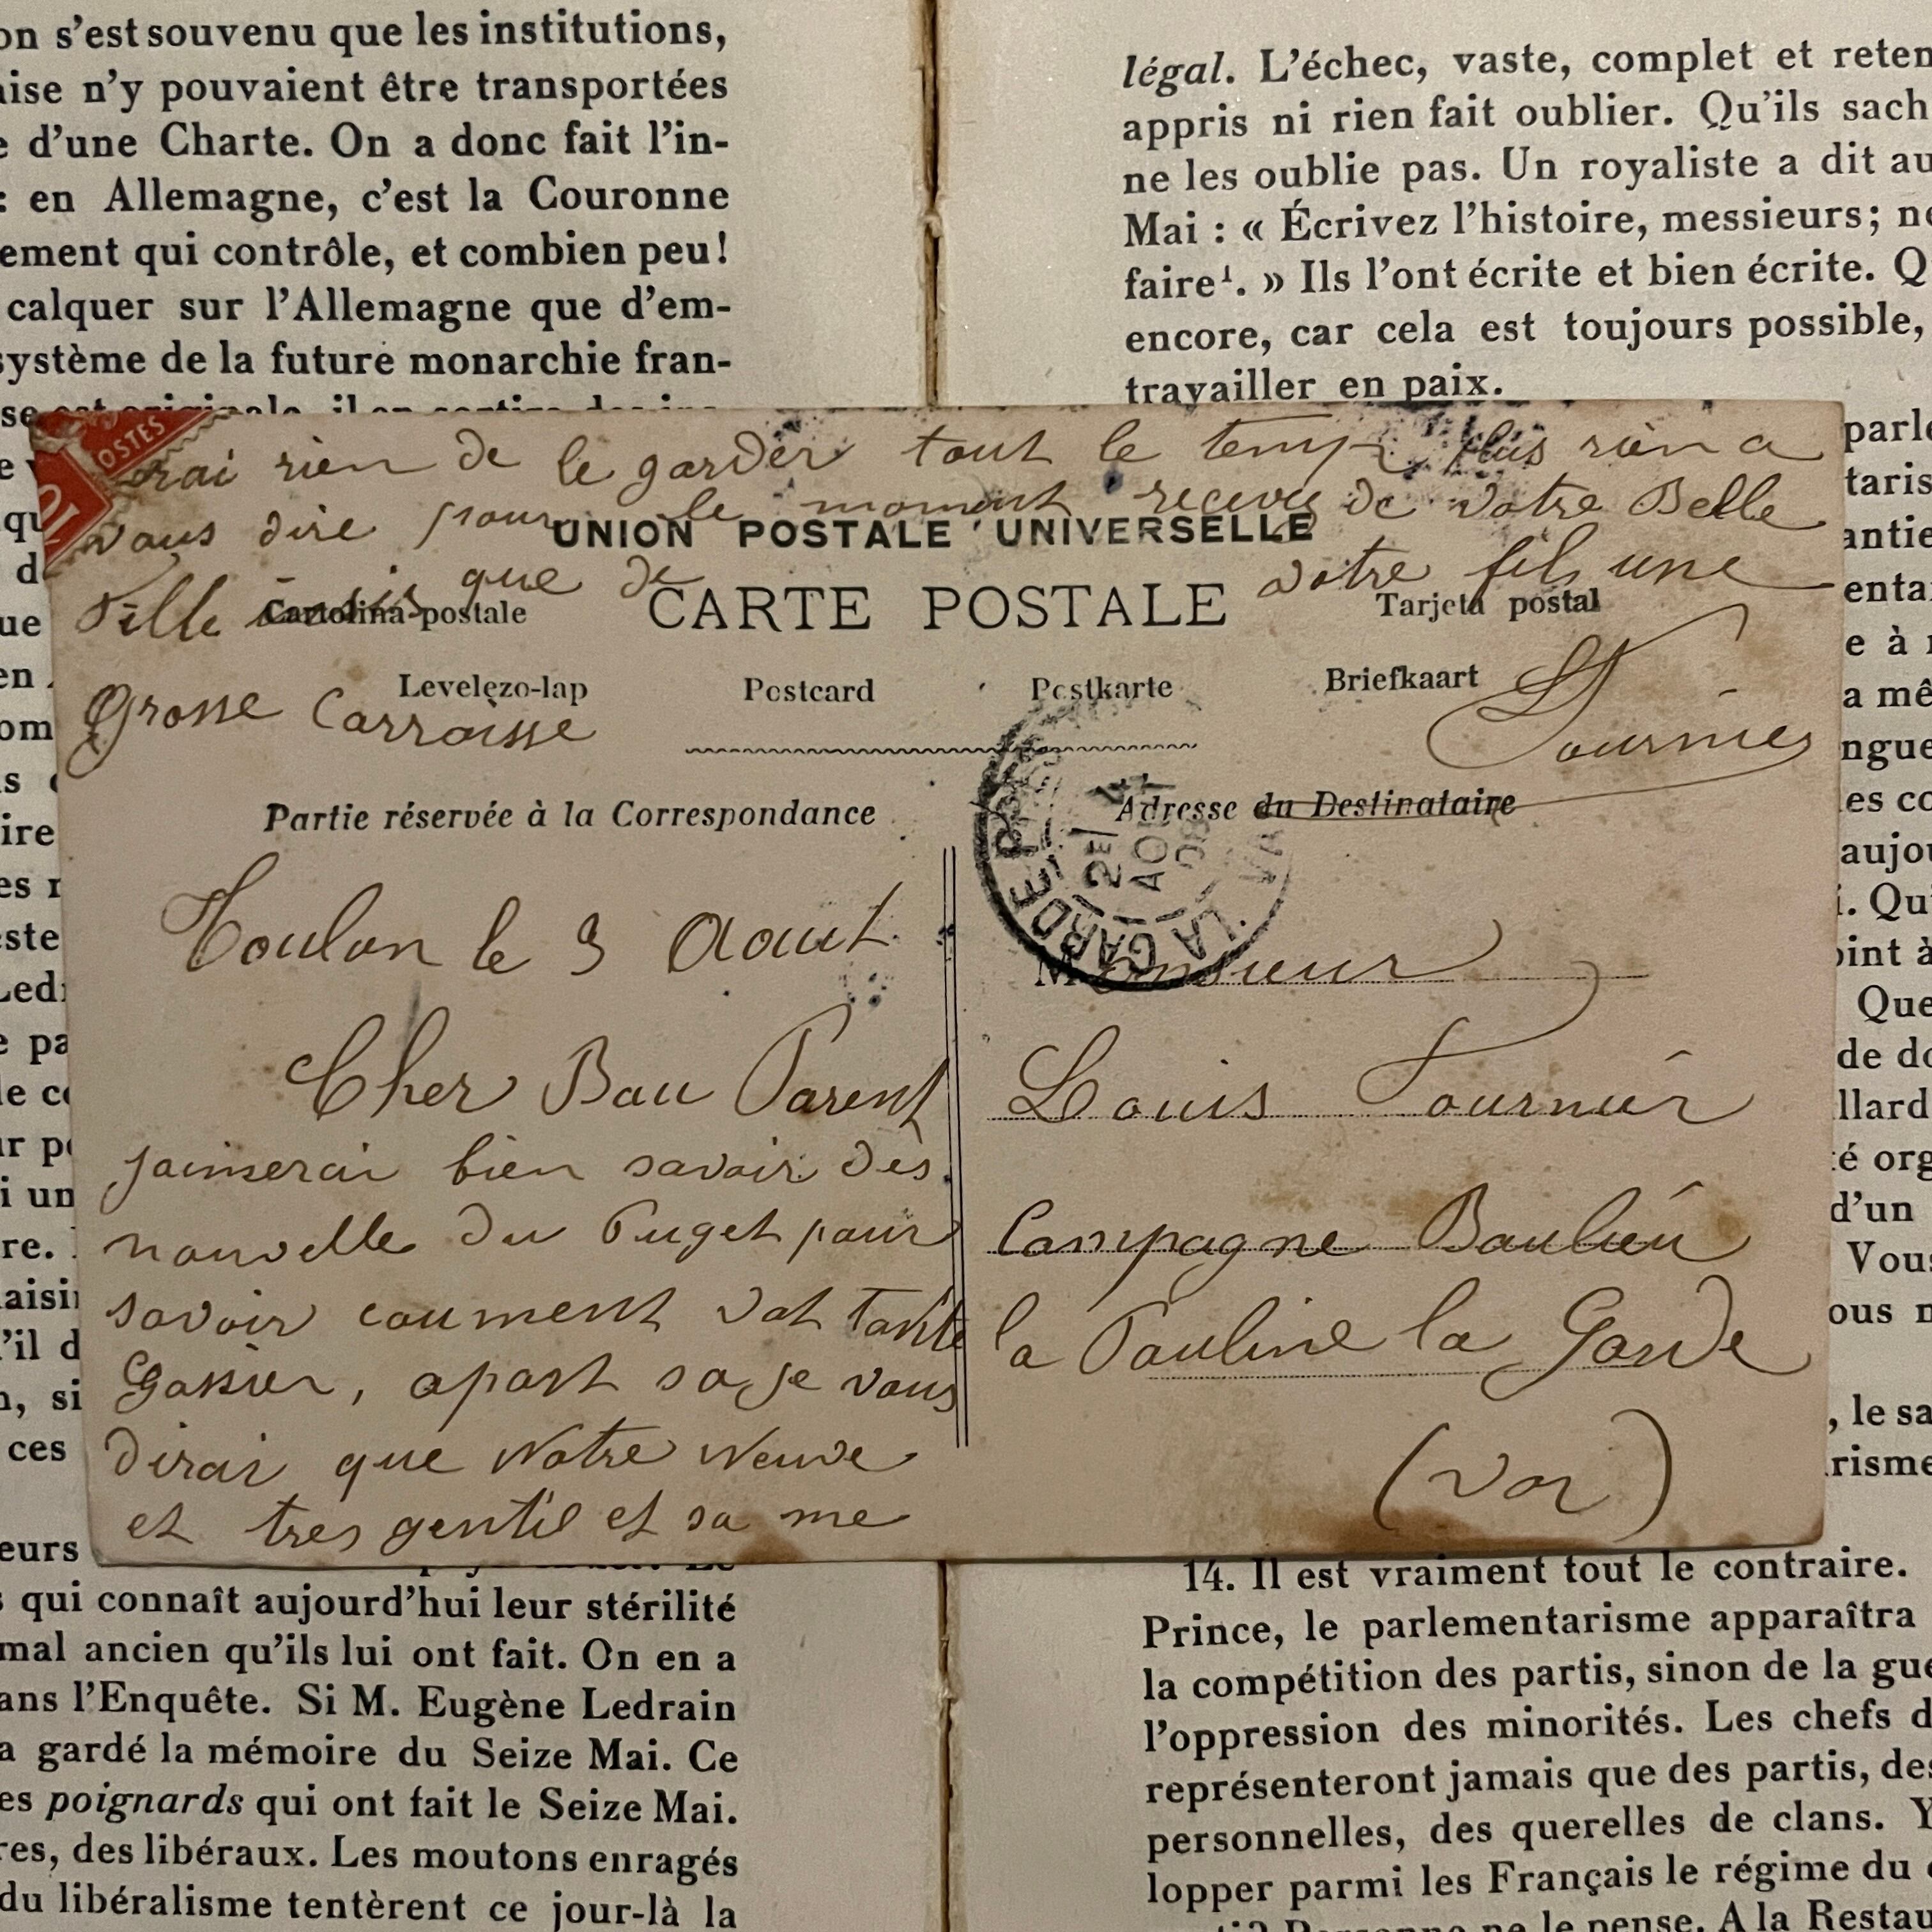 on s'est souvenu que les institutions,
aise n'y pouvaient être transportées
e d'une Charte. On a donc fait l'in-
: en Allemagne, c'est la Couronne
ement qui contrôle, et combien peu!
calquer sur l'Allemagne que d'em-
système de la future monarchie fran-
légal. L'échec, vaste, complet et reten
appris ni rien fait oublier. Qu'ils sach
ne les oublie pas. Un royaliste a dit au
Mai : « Écrivez l'histoire, messieurs; ne
faire¹. » Ils l'ont écrite et bien écrite. Q
encore, car cela est toujours possible,
travailler en paix.
POSTES
10
rai rien de le garder tout le temp plus rien a
vous dire pour le moment recevez de votre Belle
fille insis que de votre fils une
Grosse Carraisse
Fournier
UNION POSTALE UNIVERSELLE
CARTE POSTALE
Cartolina postale
Tarjeta postal
Levelezo-lap
Postcard
Postkarte
Briefkaart
Partie réservée à la Correspondance
Adresse du Destinataire
LA GARDE
2E
4
AOUT
08
VAR
Toulon le 3 Aout
Cher Bau Parent
jaimerai bien savoir dès
nouvelle du Puget pour
savoir comment vat Tante
Gassier, apart sa je vous
dirai que Notre Neuve
et tres gentil et sa me
Monsieur
Louis Fournier
Campagne Baulieu
la Pauline la Garde
(Var)
s qui connaît aujourd'hui leur stérilité
mal ancien qu'ils lui ont fait. On en a
ans l'Enquête. Si M. Eugène Ledrain
a gardé la mémoire du Seize Mai. Ce
es poignards qui ont fait le Seize Mai.
res, des libéraux. Les moutons enragés
du libéralisme tentèrent ce jour-là la
14. Il est vraiment tout le contraire.
Prince, le parlementarisme apparaîtra
la compétition des partis, sinon de la gue
l'oppression des minorités. Les chefs d
représenteront jamais que des partis, des
personnelles, des querelles de clans. Y
lopper parmi les Français le régime du